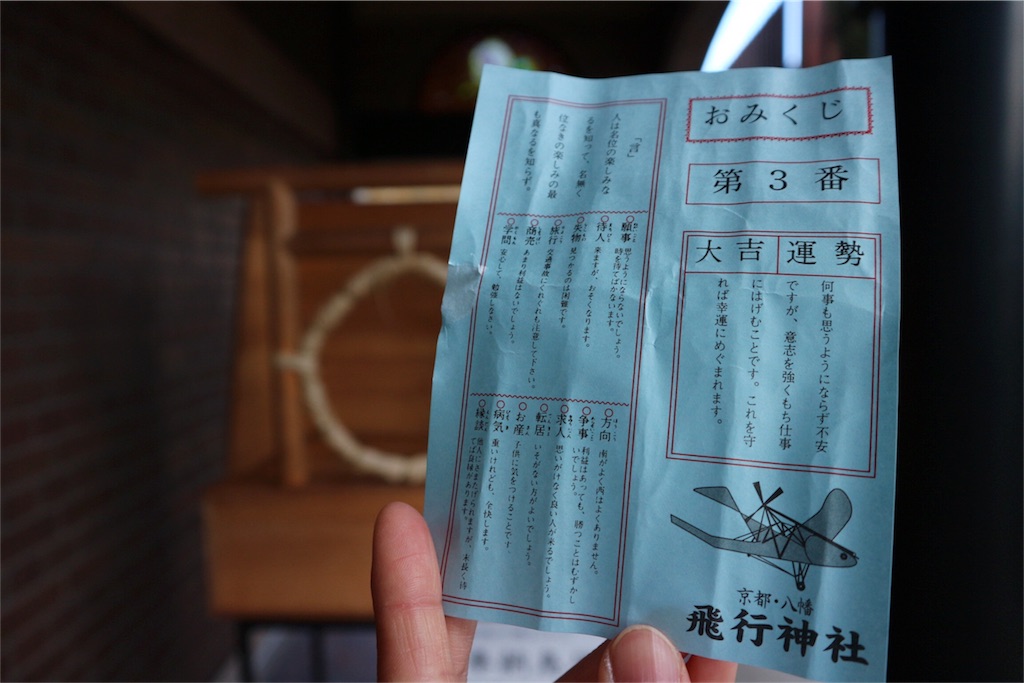 おみくじ
第3番
大吉運勢
何事も思うようにならず不安
ですが、意志を強くもち仕事
にはげむことです。これを守
れば幸運にめぐまれます。
京都・八幡
飛行神社
「言」
人は名位の楽しみな
るを知って、名無く
位なきの楽しみの最
も真なるを知らず。
願事 思うようにならないでしょう。
時を待てばかないます。
待人 来ますが、おそくなります。
失物 見つかるのは困難です。
旅行 交通事故にくれぐれも注意して下さい。
商売 あまり利益はないでしょう。
学問 安心して、勉強しなさい。
方向 南がよく西はよくありません。
争事 利益はあっても、勝つことはむずかし
いでしょう。
求人 思いがけなく良い人が来るでしょう。
転居 いそがない方がよいでしょう。
お産 子供に気をつけることです。
病気 重いけれども、全快します。
縁談 他人にさまたげられますが、末長く待
てば良縁があります。